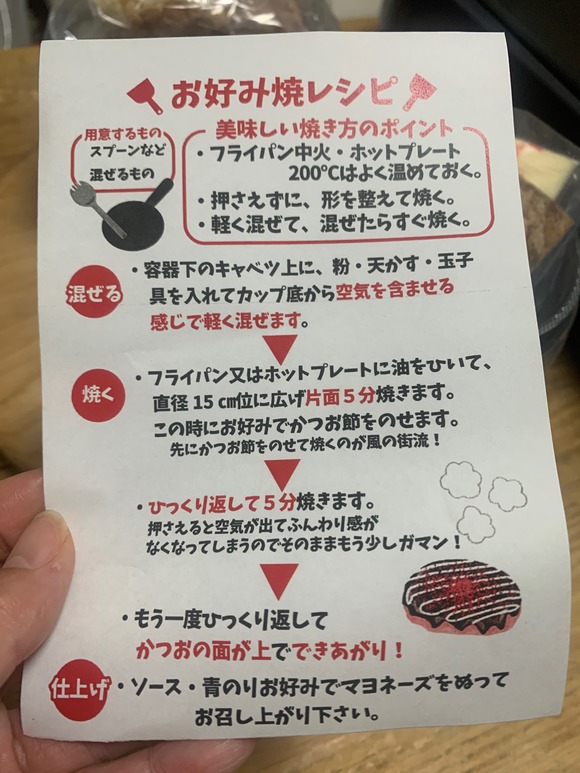 お好み焼レシピ
用意するもの
スプーンなど
混ぜるもの
美味しい焼き方のポイント
・フライパン中火・ホットプレート
200℃はよく温めておく。
・押さえずに、形を整えて焼く。
・軽く混ぜて、混ぜたらすぐ焼く。
混ぜる
・容器下のキャベツ上に、粉・天かす・玉子
具を入れてカップ底から空気を含ませる
感じで軽く混ぜます。
焼く
・フライパン又はホットプレートに油をひいて、
直径15㎝位に広げ片面5分焼きます。
この時にお好みでかつお節をのせます。
先にかつお節をのせて焼くのが風の街流！
・ひっくり返して5分焼きます。
押さえると空気が出てふんわり感が
なくなってしまうのでそのままもう少しガマン！
・もう一度ひっくり返して
かつおの面が上でできあがり！
仕上げ
・ソース・青のりお好みでマヨネーズをぬって
お召し上がり下さい。